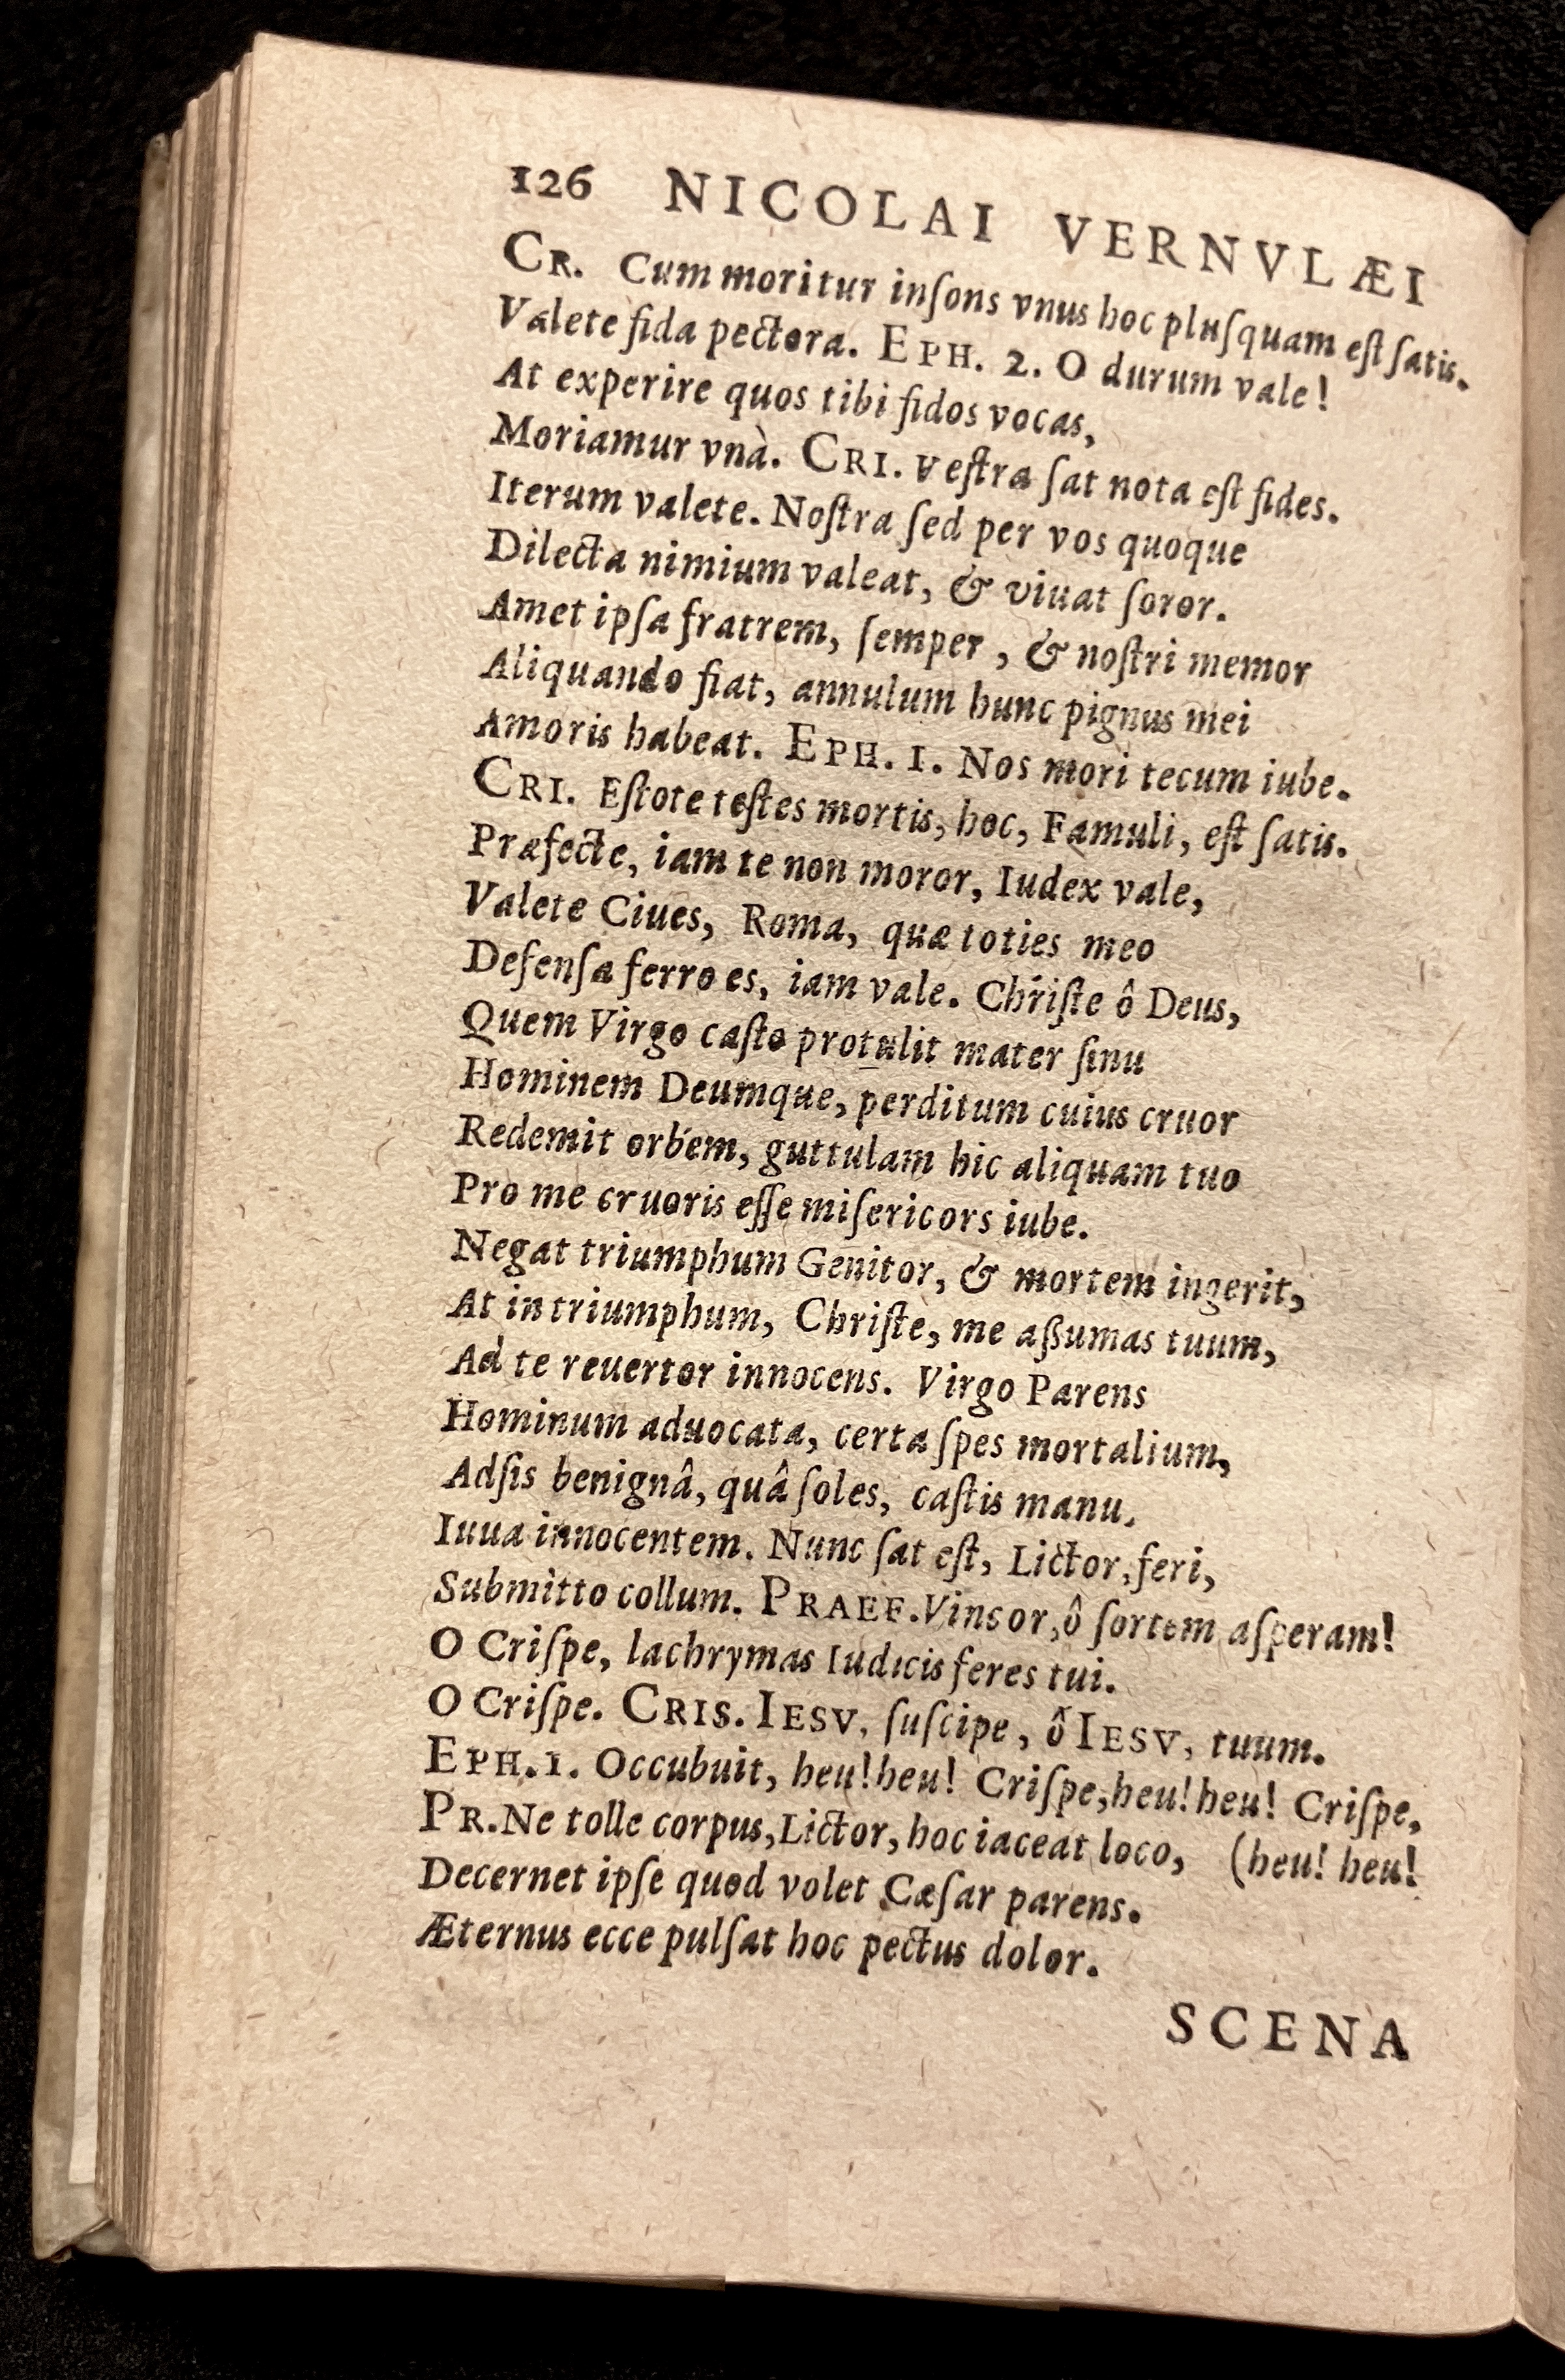 126 NICOLAI VERNVLÆI
CR. Cum moritur inſons vnus hoc pluſquam eſt ſatis.
Valete fida pectora. EPH. 2. O durum vale!
At experire quos tibi fidos vocas,
Moriamur vnà. CRI. veſtra ſat nota eſt fides.
Iterum valete. Noſtra ſed per vos quoque
Dilecta nimium valeat, & viuat ſoror.
Amet ipſa fratrem, ſemper, & noſtri memor
Aliquando fiat, annulum hunc pignus mei
Amoris habeat. EPH. I. Nos mori tecum iube.
CRI. Eſtote teſtes mortis, hoc, Famuli, eſt ſatis.
Præfecte, iam te non moror, Iudex vale,
Valete Ciues, Roma, quæ toties meo
Defenſa ferro es, iam vale. Chriſte ô Deus,
Quem Virgo caſto protulit mater ſinu
Hominem Deumque, perditum cuius cruor
Redemit orbem, guttulam hic aliquam tuo
Pro me cruoris eſſe miſericors iube.
Negat triumphum Genitor, & mortem ingerit,
At in triumphum, Chriſte, me aſsumas tuum,
Ad te reuertor innocens. Virgo Parens
Hominum aduocata, certa ſpes mortalium,
Adſis benignâ, quâ ſoles, caſtis manu.
Iuua innocentem. Nunc ſat eſt, Lictor, feri,
Submitto collum. PRAEF. Vincor, ô ſortem aſperam!
O Criſpe, lachrymas Iudicis feres tui.
O Criſpe. CRIS. IESV, ſuſcipe, ô IESV, tuum.
EPH. I. Occubuit, heu! heu! Criſpe, heu! heu! Criſpe,
PR. Ne tolle corpus, Lictor, hoc iaceat loco, (heu! heu!
Decernet ipſe quod volet Cæſar parens.
Æternus ecce pulſat hoc pectus dolor.
SCENA